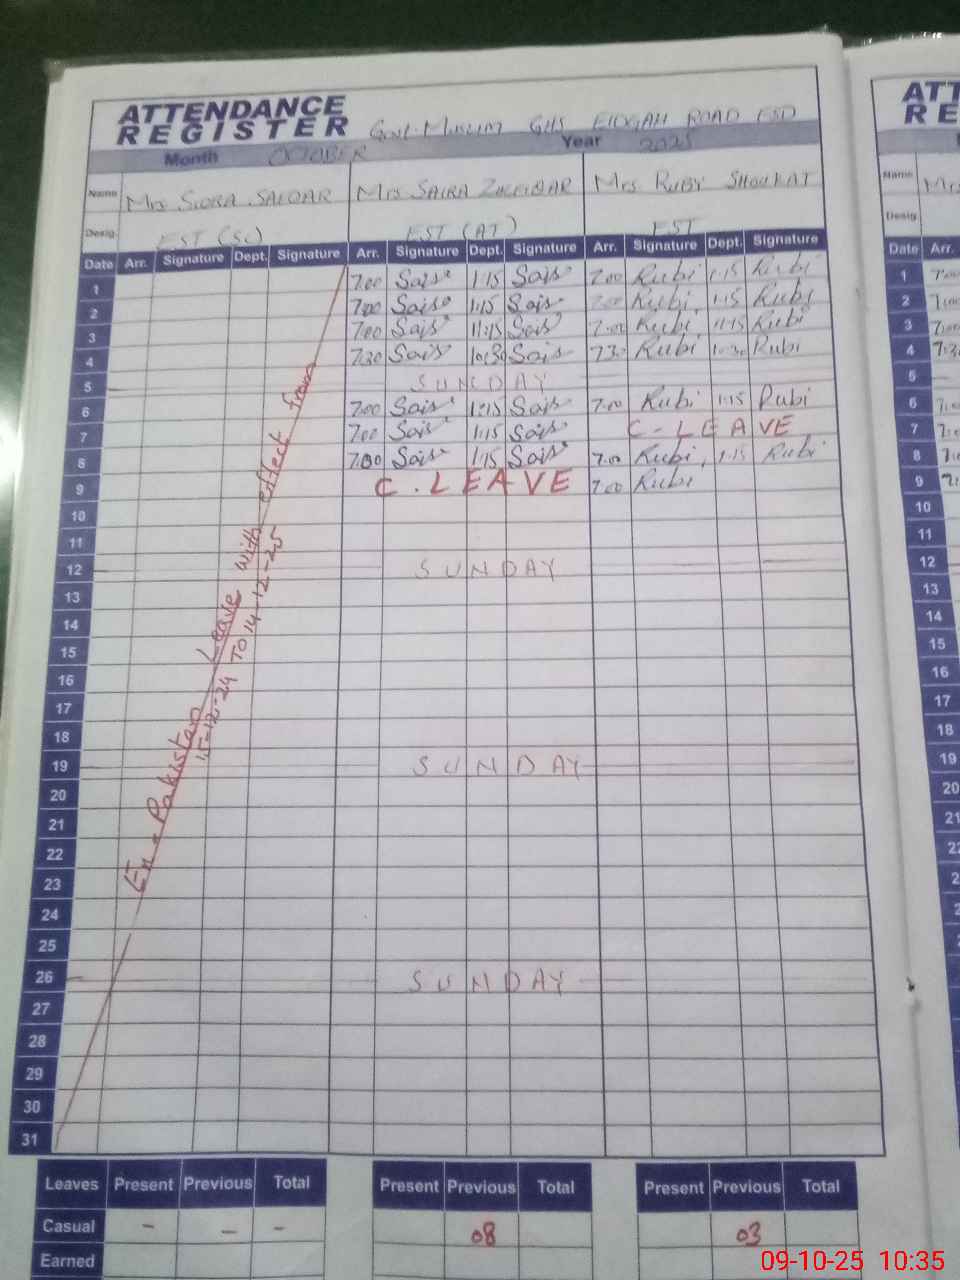 ATTENDANCE REGISTER Govt. Muslim GHS EIDGAH ROAD FSD
Month OCTOBER Year 2025
Name Mrs SIDRA SAFDAR Mrs SAIRA ZULFIQAR Mrs RUBY SHOUKAT
Desig. EST (SC) EST (AT) EST
Date Arr. Signature Dept. Signature Arr. Signature Dept. Signature Arr. Signature Dept. Signature
1 7.00 1:15 7.00 Rubi 1:15 Rubi
2 7.00 1:15 7.00 Rubi 1:15 Rubi
3 7.00 11:15 7.00 Rubi 11:15 Rubi
4 7.30 10:30 7.30 Rubi 10:30 Rubi
5 SUNDAY
6 7.00 1:15 7.00 Rubi 1:15 Rubi
7 7.00 1:15 C-LEAVE
8 7.00 1:15 7.00 Rubi 1:15 Rubi
9 C.LEAVE 7.00 Rubi
10
11
12 SUNDAY
13
14
15
16
17
18
19 SUNDAY
20
21
22
23
24
25
26 SUNDAY
27
28
29
30
31
Ex-Pakistan Leave With effect from
15-12-24 TO 14-12-25
Leaves Present Previous Total Present Previous Total Present Previous Total
Casual - - - 08 03
Earned
ATT
RE
Name Mrs
Desig.
Date Arr.
1 7:00
2 7:00
3 7:00
4 7:30
5
6 7:00
7 7:00
8
9
10
11
12
13
14
15
16
17
18
19
20
21
09-10-25 10:35